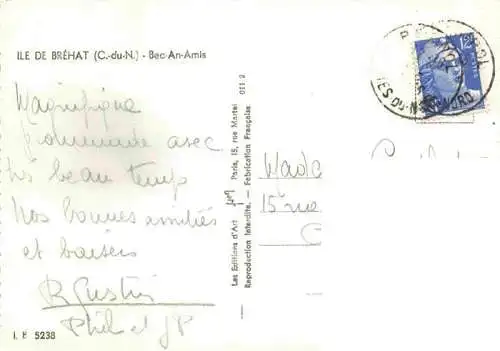 ILE DE BRÉHAT (C.-du-N.) - Bec-An-Amis
Magnifique
promenade avec
très beau temps
Nos bonnes amitiés
et baisers
Phil et JP
I. P 5238
Les Editions d'Art Paris, 15, rue Martel
Reproduction Interdite. - Fabrication Française
12F
CÔTES-DU-NORD
Mada
15 rue
C